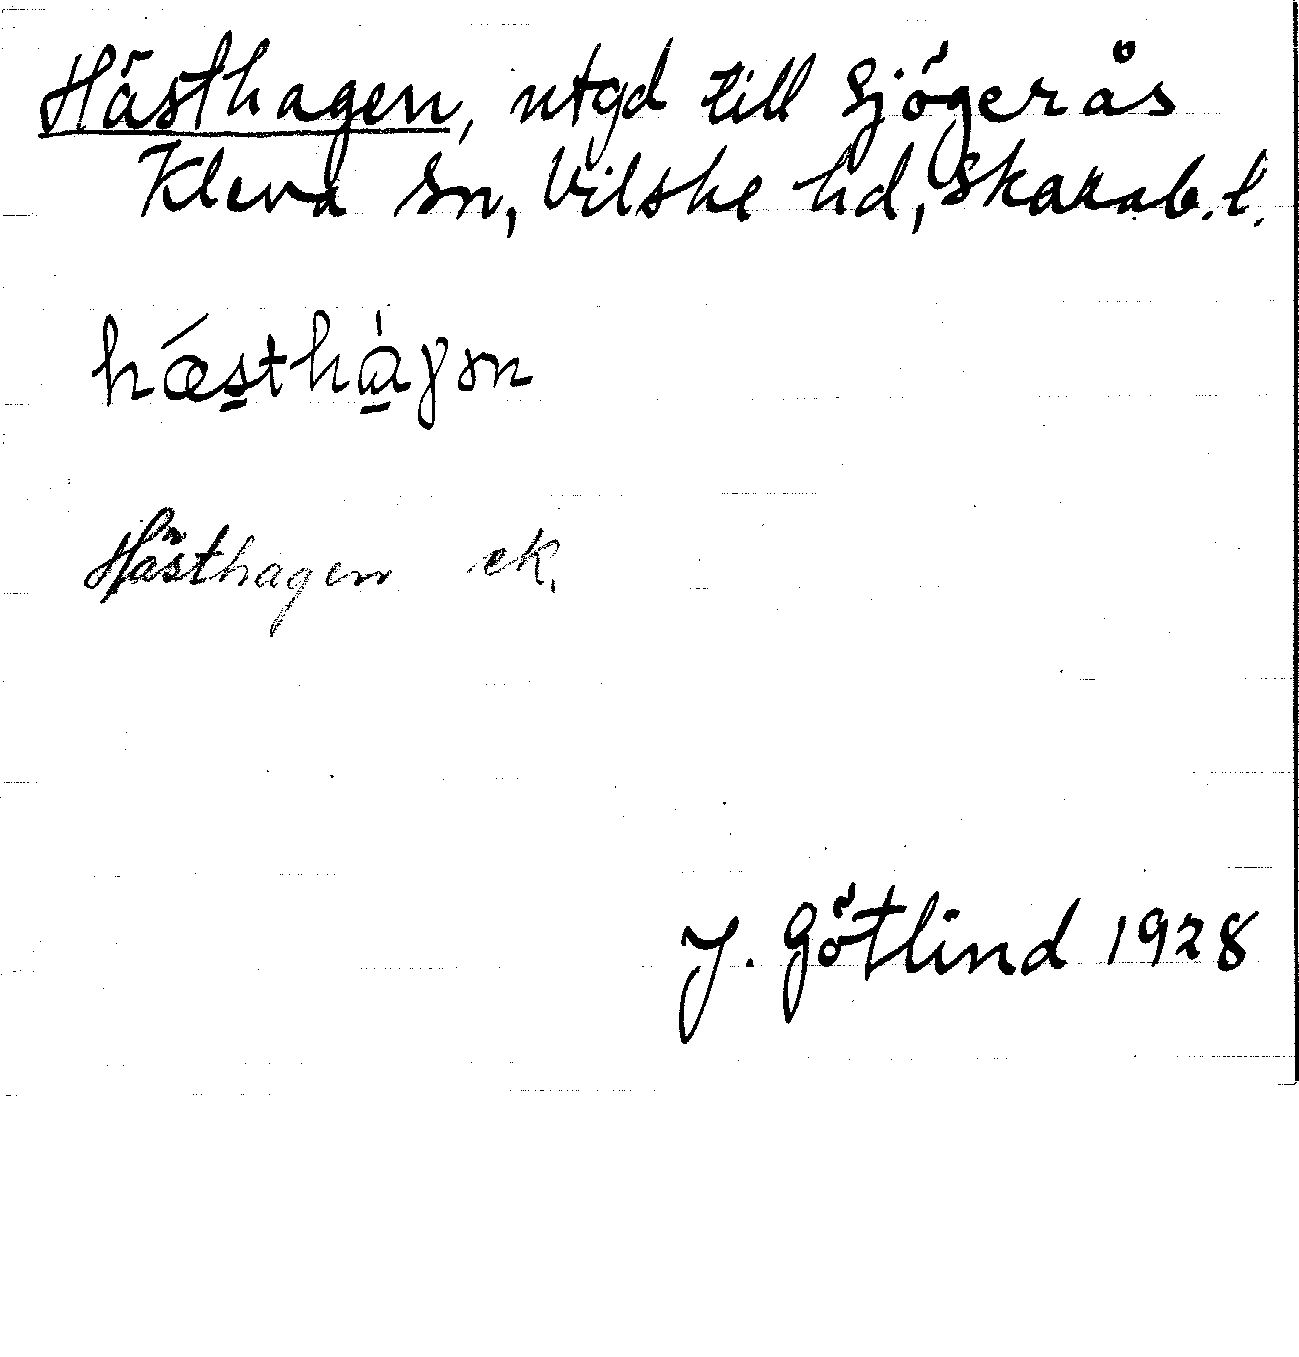 Hästhagen, utgd till Sjögerås
Kleva Sn, Vilske hd, Skarab. l.
hǽs̱thà̱gən
Hästhagen ek.
J. Götlind 1928